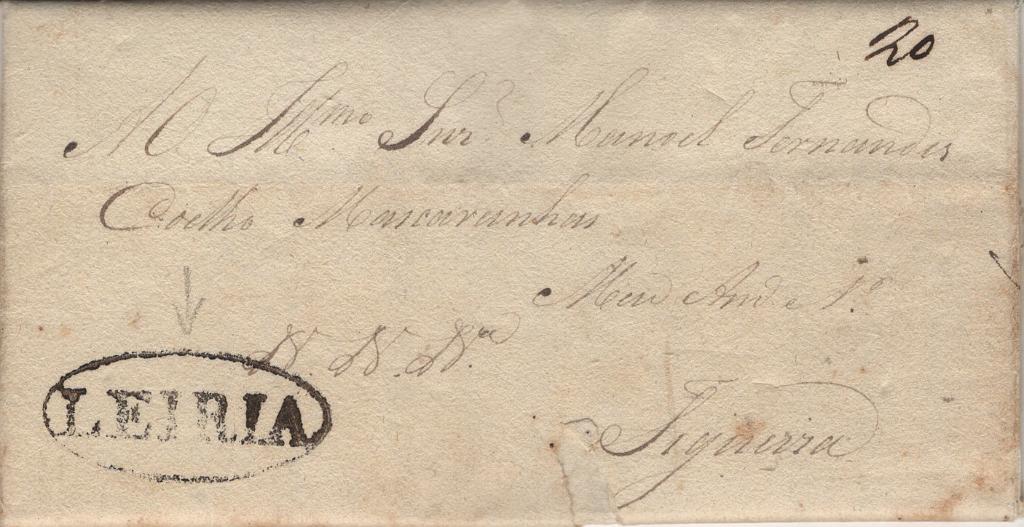 20
Ao Illmo Snr. Manoel Fernandes
Coelho Mascarenhas
Meu Am.º e
Figueira
LEIRIA